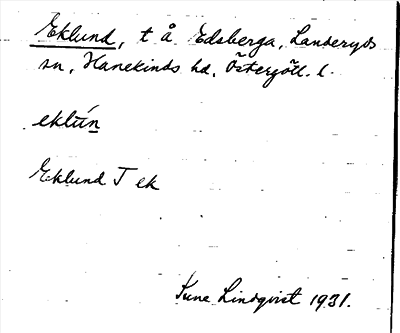 Eklund, t å Edsberga, Landeryds
sn, Hanekinds hd, Östergötl. l.
eklún
Eklund T ek
Sune Lindqvist 1931.